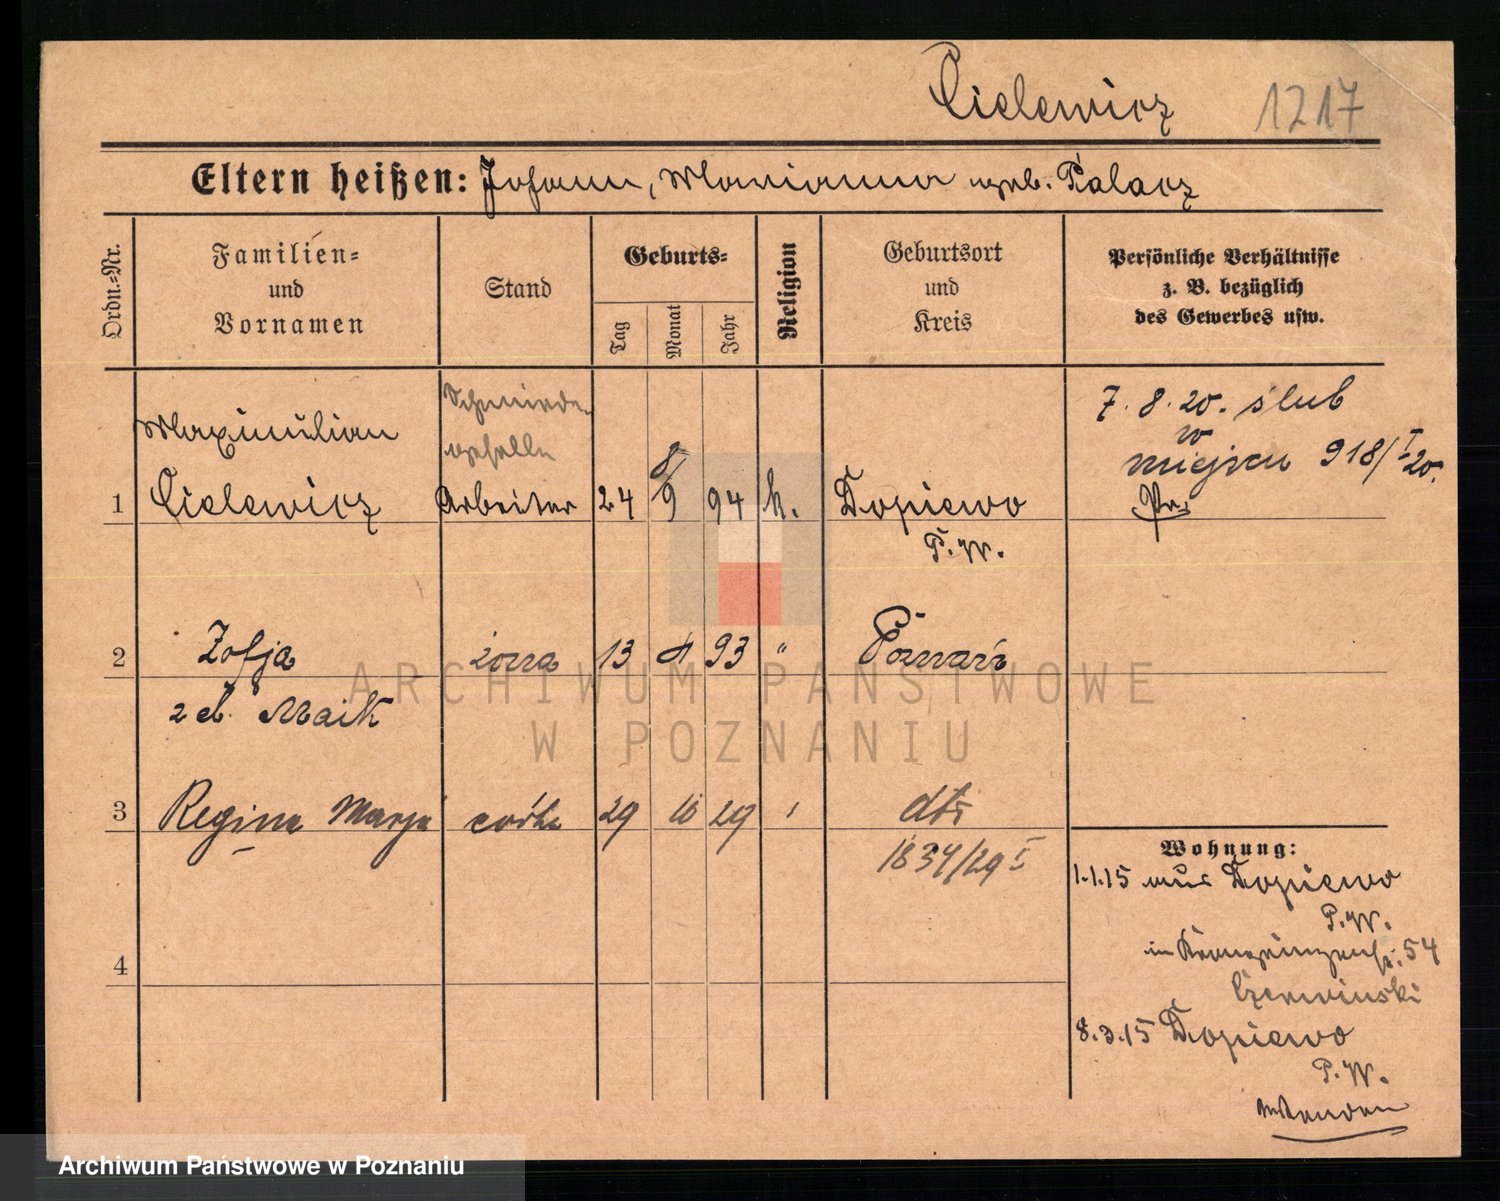 Cielewicz 1217
Eltern heißen: Johann, Marianna geb. Palacz
Ordn.-Nr.
Familien-
und
Vornamen
Stand
Geburts-
Tag
Monat
Jahr
Religion
Geburtsort
und
Kreis
Persönliche Verhältnisse
z. B. bezüglich
des Gewerbes usw.
Maximilian
Schmiede-
geselle
8/
7. 8. 20. ślub
w
miejscu 918/I 20.
1 Cielewicz Arbeiter 24 9 94 k. Dopiewo
P. W.
2 Zofja żona 13 4 93 " Poznań
z d. Maik
3 Regina Marja córka 29 10 29 dto
1834/29 I
4
Wohnung:
1.1.15 aus Dopiewo
P. W.
in Kronprinzenstr. 54
Czerwinski
8.3.15 Dopiewo
P. W.
wenden
ARCHIWUM PAŃSTWOWE
W POZNANIU
Archiwum Państwowe w Poznaniu